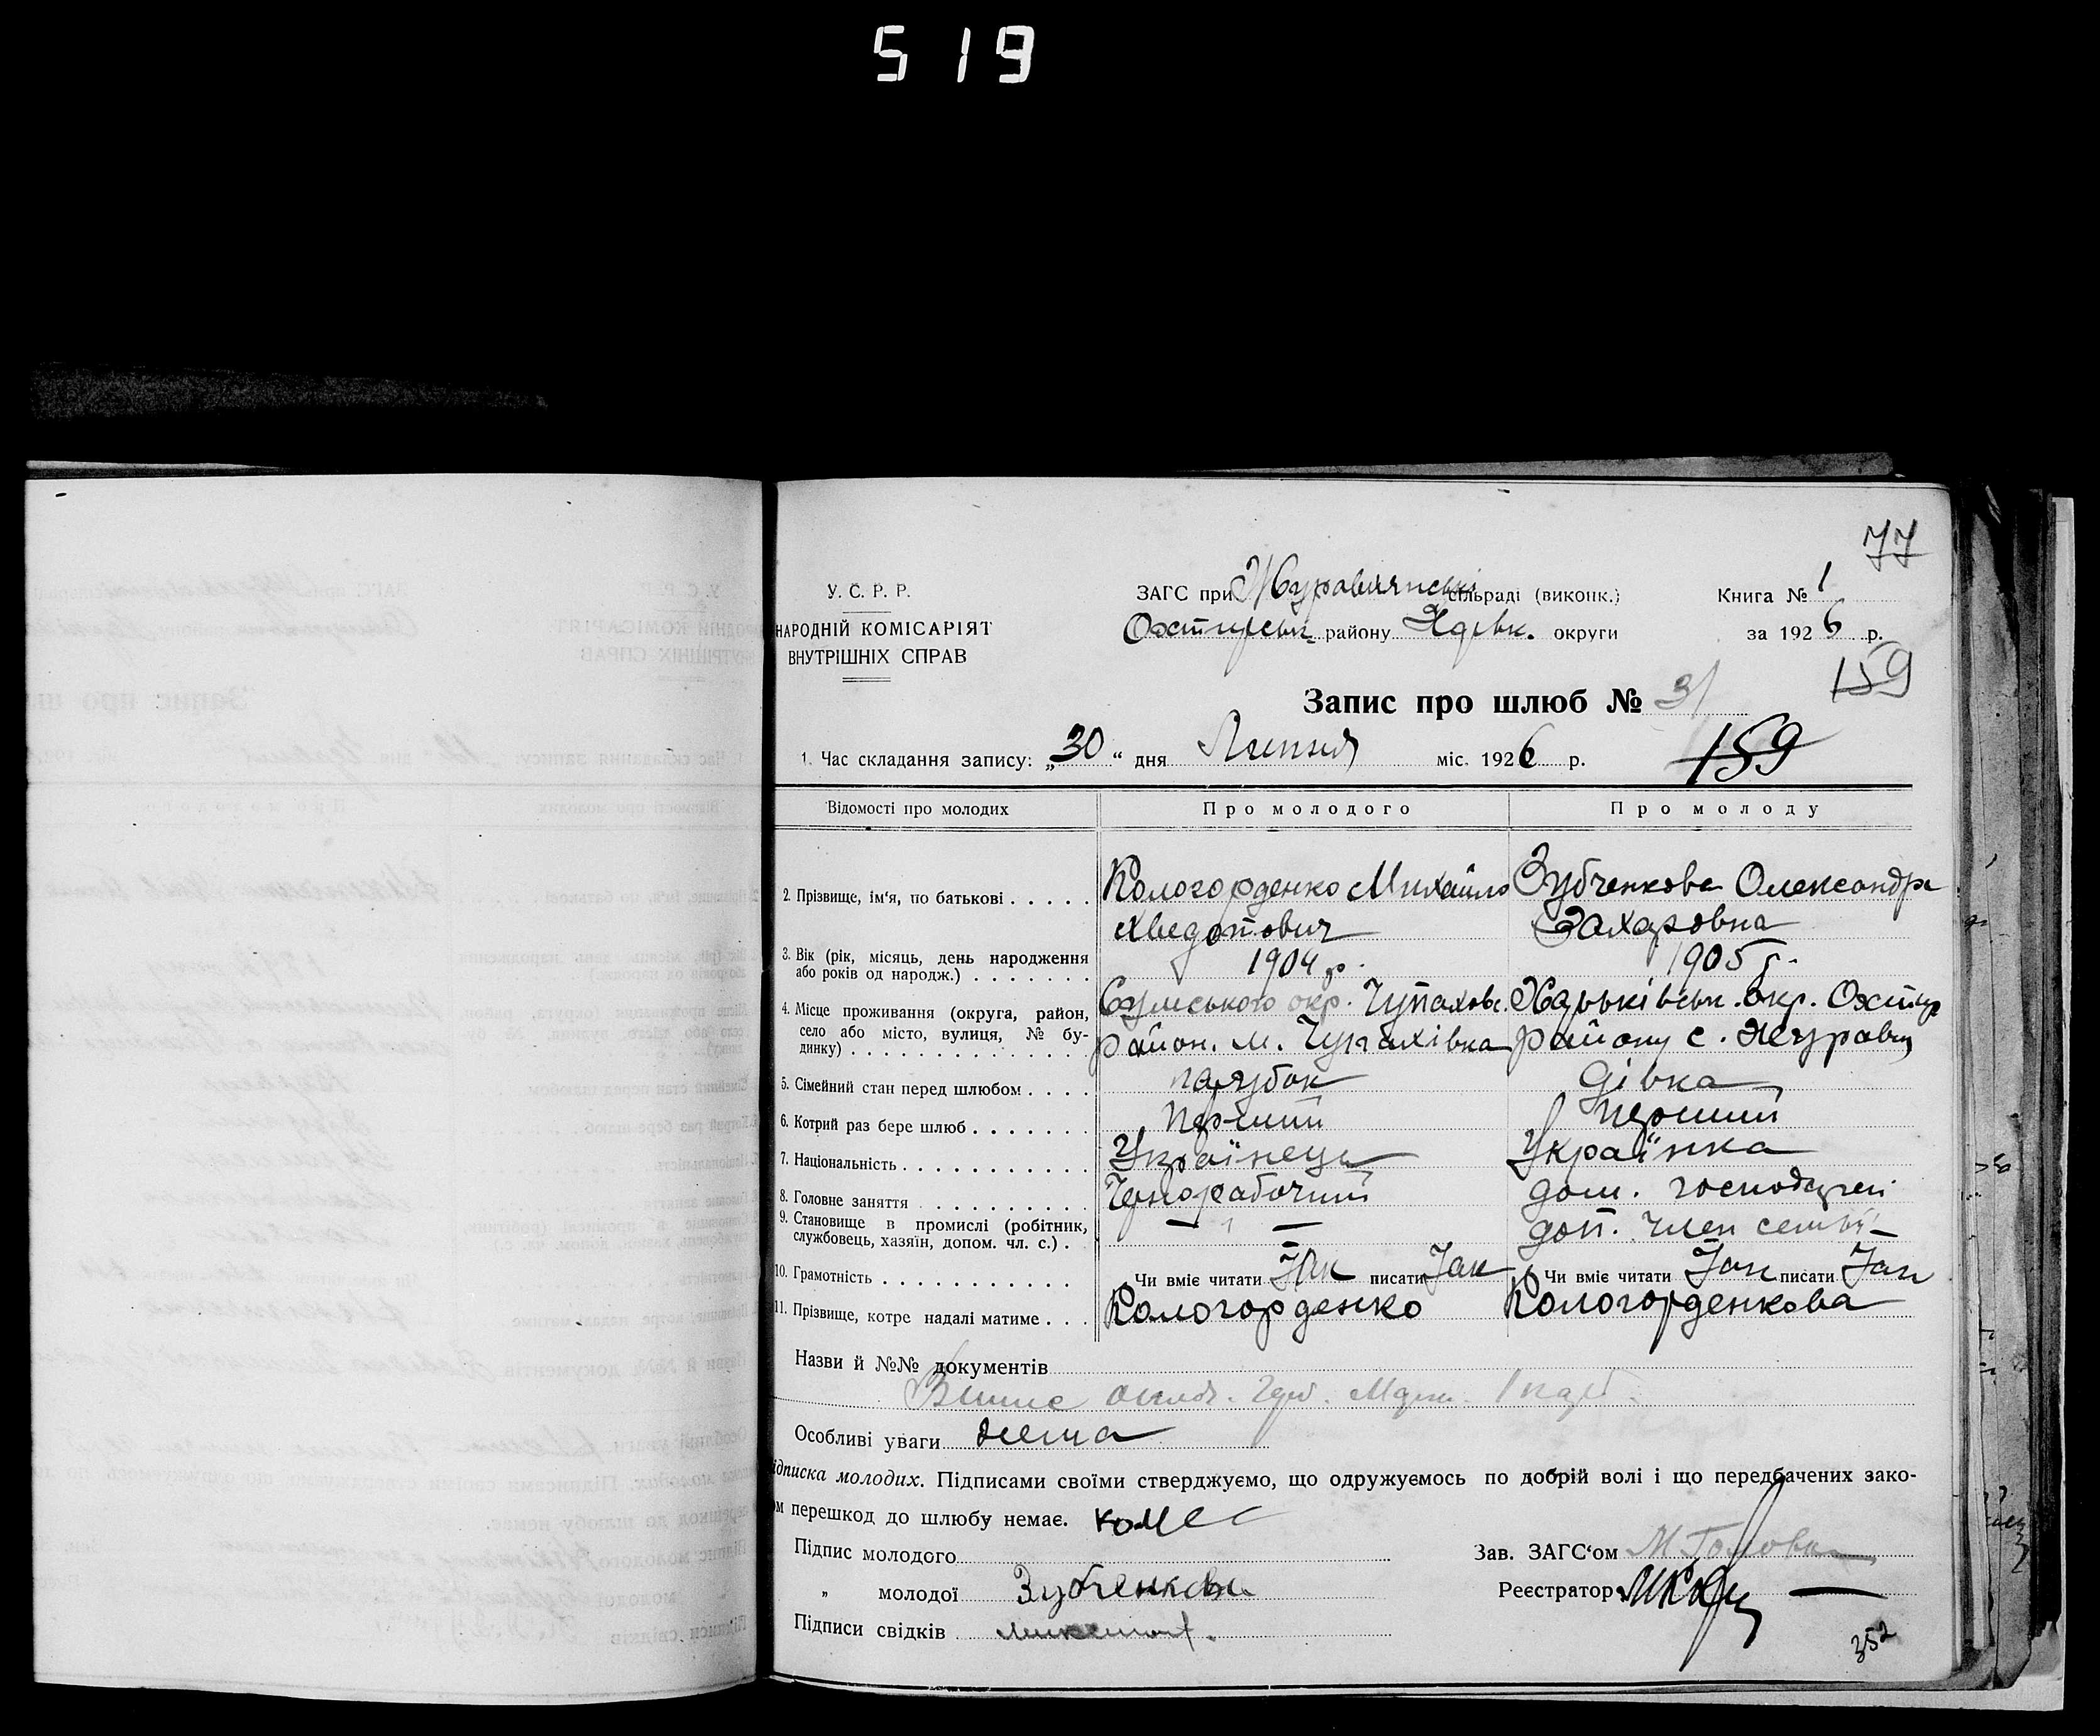 519
77
У. С. Р. Р.
НАРОДНІЙ КОМІСАРІЯТ
ВНУТРІШНІХ СПРАВ
ЗАГС при Журавлянські сільраді (виконк.)
Охтирськ. району Харьк. округи
Книга № 1
за 1926 р.
159
Запис про шлюб № 31
1. Час складання запису: „30“ дня Липня міс. 1926 р.
159
Відомості про молодих
Про молодого
Про молоду
2. Прізвище, ім‘я, по батькові
Кологорденко Михайло Хведотович
Зубченкова Олександра Захаровна
3. Вік (рік, місяць, день народження або років од народж.)
1904 р.
1905 р.
4. Місце проживання (округа, район, село або місто, вулиця, № будинку)
Сумського окр. Чупаховс. район. м. Чупахівка
Харьківськ. окр. Охтир району с. Журавн
5. Сімейний стан перед шлюбом
парубок
дівка
6. Котрий раз бере шлюб
перший
перший
7. Національність
Українець
Українка
8. Головне заняття
Чорнорабочий
дом. господарен
9. Становище в промислі (робітник, службовець, хазяїн, допом. чл. с.)
— " —
доп. член семьї
10. Грамотність
Чи вміє читати Так писати Так
Чи вміє читати Так писати Так
11. Прізвище, котре надалі матиме
Кологорденко
Кологорденкова
Назви й №№ документів
Особливі уваги нема
ідписка молодих. Підписами своїми стверджуємо, що одружуємось по добрій волі і що передбачених зако-
ом перешкод до шлюбу немає.
Підпис молодого
Зав. ЗАГС‘ом М Головка
„ молодої Зубченкова
Реєстратор
Підписи свідків
352